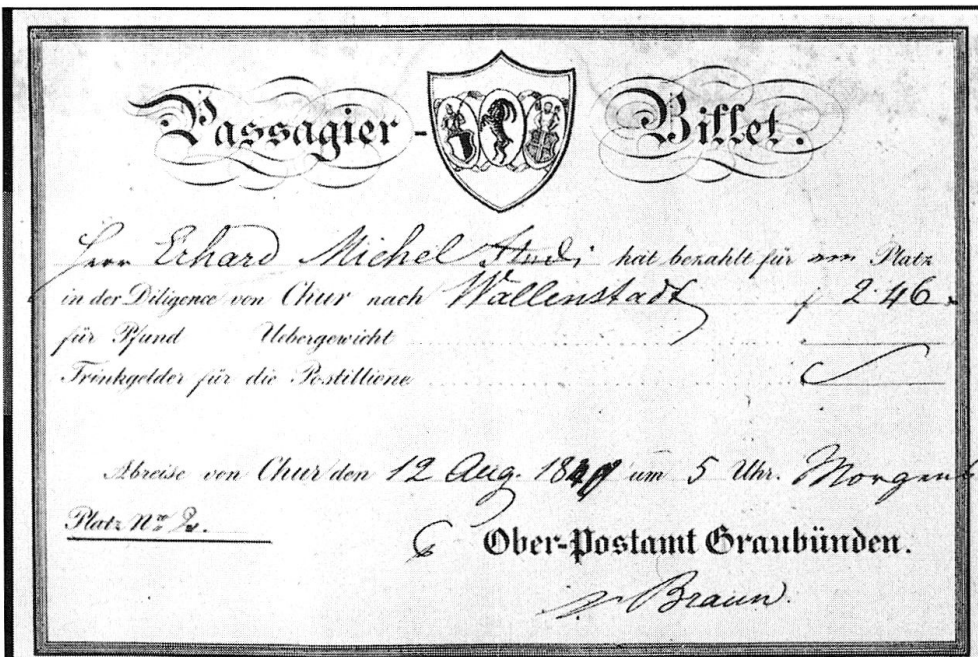 Passagier - Billet.
Herr Erhard Michel hat bezahlt für Platz
in der Diligence von Chur nach Wallenstadt f 2.46
für Pfund Uebergewicht
Trinkgelder für die Postillione
Abreise von Chur den 12 Aug. um 5 Uhr. Morgens
Platz No 2.
Ober-Postamt Graubünden.
Braun.